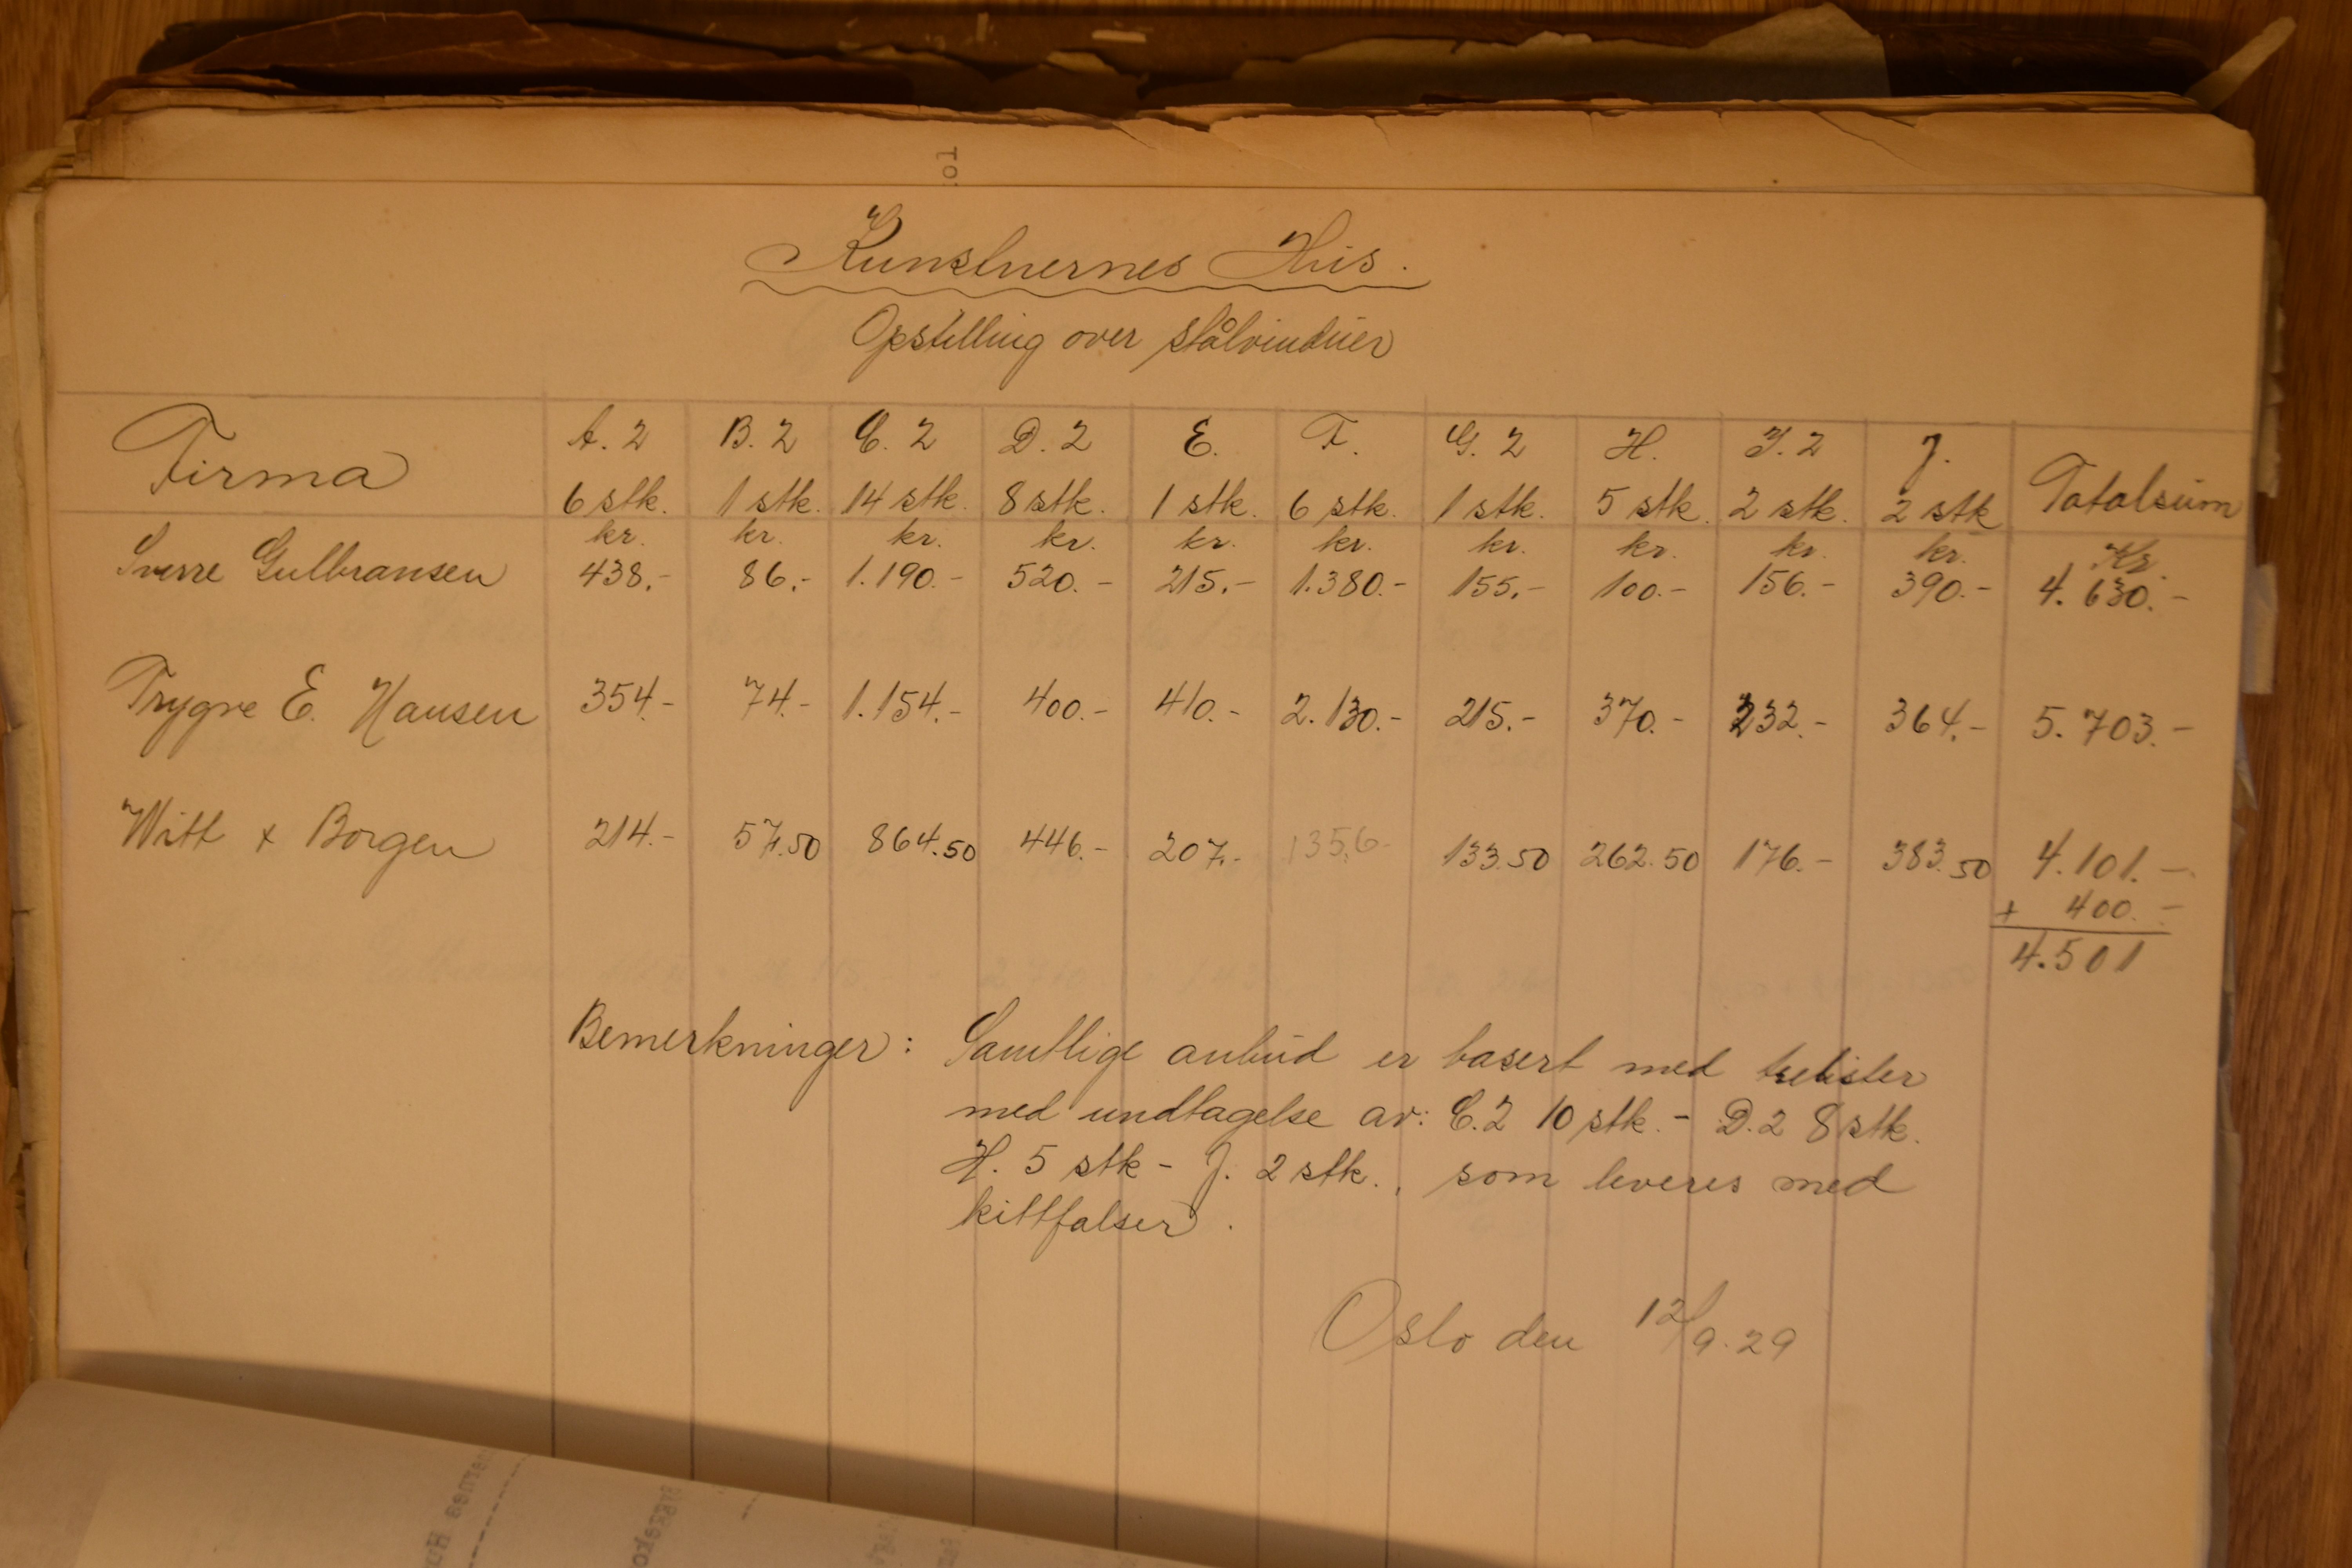 To
Kunstnernes Hus.
Opstilling over stålvinduer
Firma A.2 B.2 C.2 D.2 E. F. G.2 H. I.2 J. Totalsum
6 stk. 1 stk. 14 stk. 8 stk. 1 stk. 6 stk. 1 stk. 5 stk. 2 stk. 2 stk
kr. kr. kr. kr. kr. kr. kr. kr. kr. kr. Kr.
Sverre Gulbransen 438.- 86.- 1.190.- 520.- 215.- 1.380.- 155.- 100.- 156.- 390.- 4.630.-
Trygve E. Hansen 354.- 74.- 1.154.- 400.- 410.- 2.130.- 215.- 370.- 232.- 364.- 5.703.-
Witt + Borgen 214.- 57.50 864.50 446.- 207.- 1356.- 133.50 262.50 176.- 383.50 4.101.-
+ 400.-
4.501
Bemerkninger: Samtlige anbud er basert med trelister
med undtagelse av: C.2 10 stk. - D.2 8 stk.
H. 5 stk - J. 2 stk., som leveres med
kittfalser.
Oslo den 12/9.29